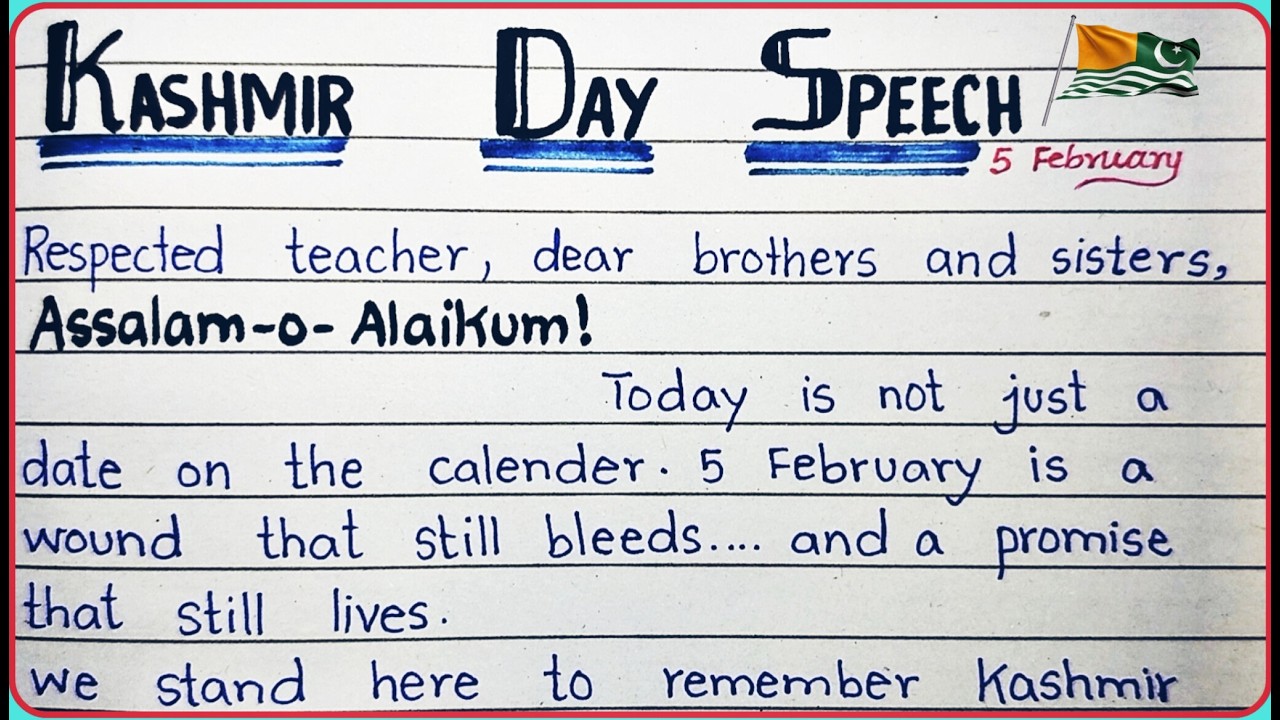 KASHMIR DAY SPEECH
5 February
Respected teacher, dear brothers and sisters,
Assalam-o-Alaikum!
Today is not just a
date on the calender. 5 February is a
wound that still bleeds.... and a promise
that still lives.
we stand here to remember Kashmir